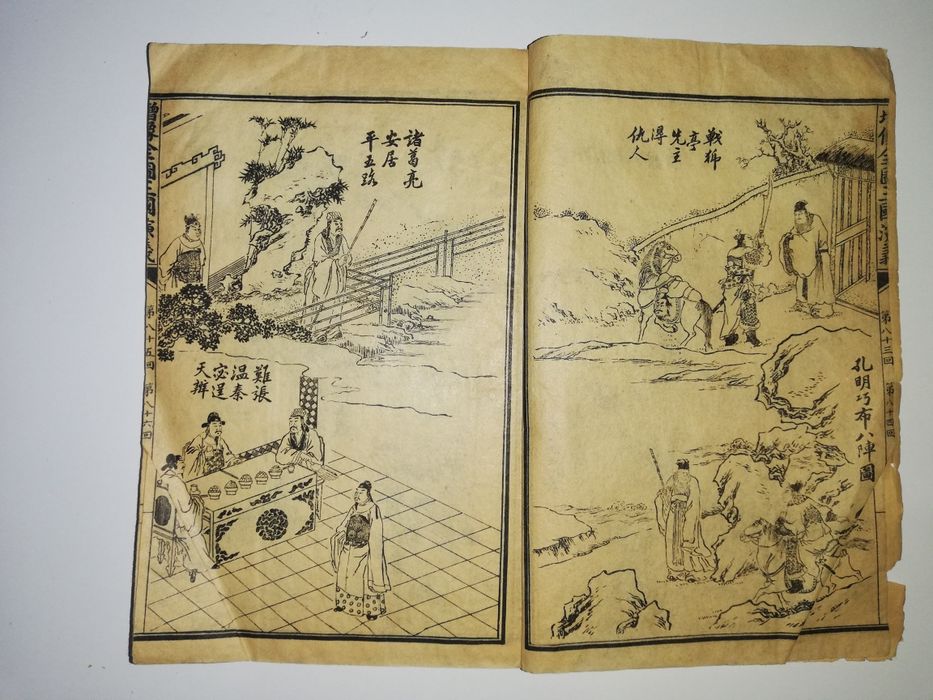 增像全圖三國演義
第八十三回 第八十四回
戰猇
亭
先主
得
仇人
孔明巧布八陣圖
諸葛亮
安居
平五路
難張
温秦
宓逞
天辯
增像全圖三國演義
第八十五回 第八十六回